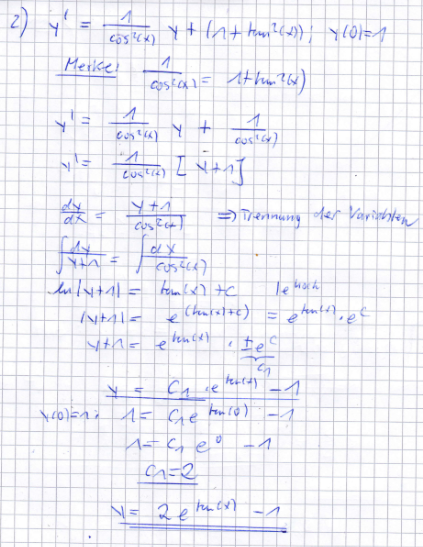 2) y' = 1/cos²(x) y + (1+tan²(x)); y(0)=1
Merke: 1/cos²(x) = 1+tan²(x)
y' = 1/cos²(x) y + 1/cos²(x)
y' = 1/cos²(x) [y+1]
dy/dx = y+1/cos²(x) ⇒ Trennung der Variablen
∫ dy/y+1 = ∫ dx/cos²(x)
ln|y+1| = tan(x) + c | e hoch
|y+1| = e^(tan(x)+c) = e^tan(x) · e^c
y+1 = e^tan(x) · ±e^c
c₁
y = C₁ · e^tan(x) - 1
y(0)=1: 1 = C₁ e^tan(0) - 1
1 = C₁ e⁰ - 1
C₁ = 2
y = 2 e^tan(x) - 1